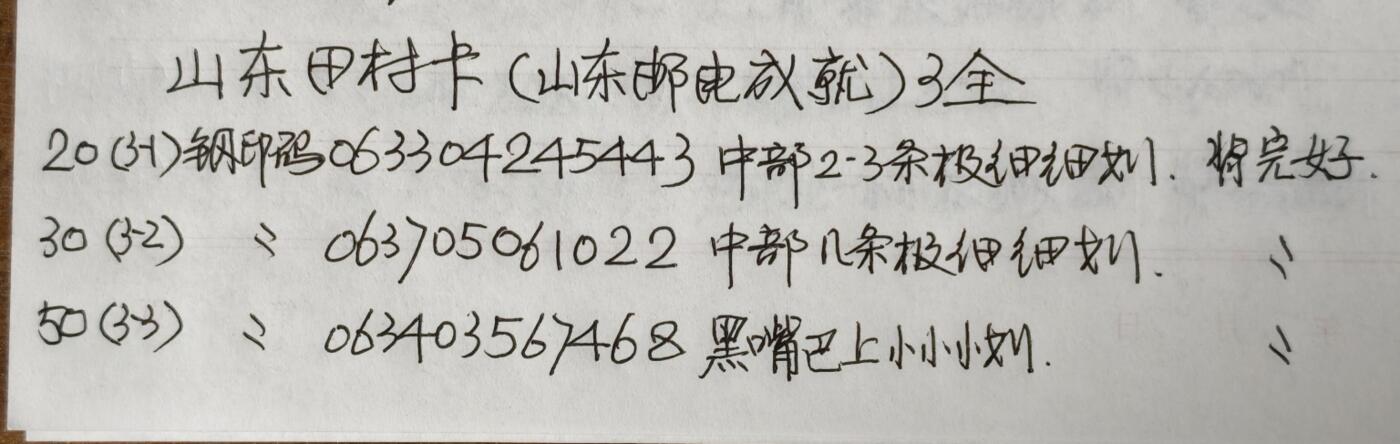 山东田村卡(山东邮电成就)3全
20(3-1)钢印码063304245443 中部2-3条极细细划. 将完好.
30(3-2) 〃 063705061022 中部几条极细细划. 〃
50(3-3) 〃 063403567468 黑嘴巴上小小小划. 〃